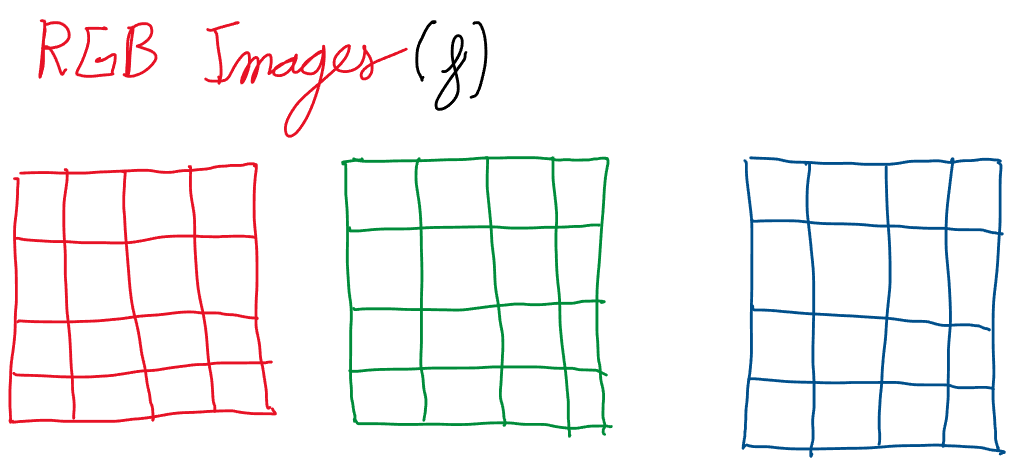 RGB Images (f)